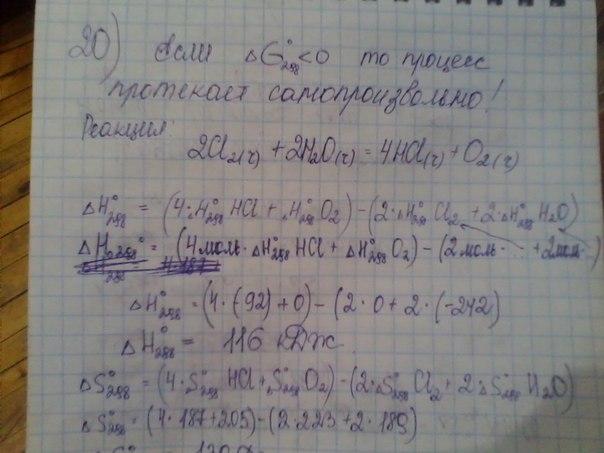 20) Если ΔG°298<0 то процесс
протекает самопроизвольно!
Реакция:
2Cl2(г) + 2H2O(г) = 4HCl(г) + O2(г)
ΔH°298 = (4·ΔH°298 HCl + ΔH°298 O2) - (2·ΔH°298 Cl2 + 2·ΔH°298 H2O)
ΔH°298 = (4 моль·ΔH°298 HCl + ΔH°298 O2) - (2 моль·... + 2 моль...)
ΔH°298 = (4·(-92) + 0) - (2·0 + 2·(-242)
ΔH°298 = 116 кДж.
ΔS°298 = (4·S°298 HCl + S°298 O2) - (2·ΔS°298 Cl2 + 2·ΔS°298 H2O)
ΔS°298 = (4·187+205)-(2·223+2·189)